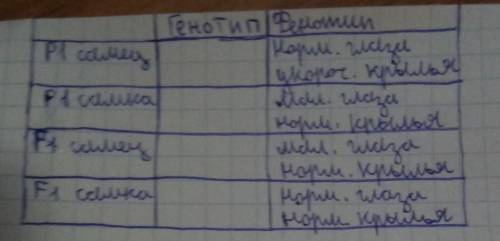 Генотип Фенотип
P1 самец норм. глаза
укороч. крылья
P1 самка мал. глаза
норм. крылья
F1 самец мал. глаза
норм. крылья
F1 самка норм. глаза
норм. крылья